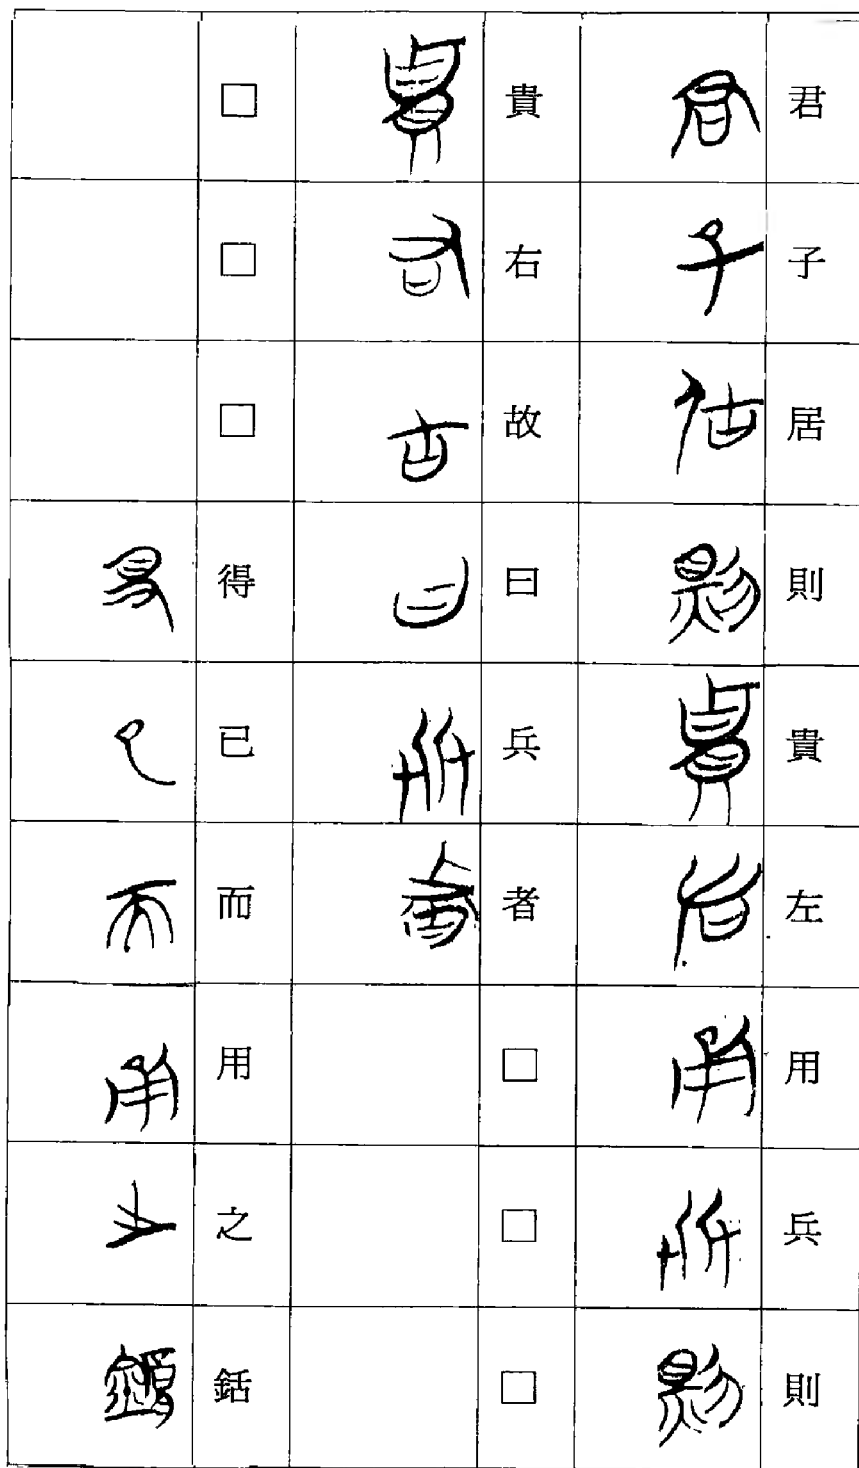 君子居則貴左用兵則
貴右故曰兵者□□□
□□□得已而用之銛